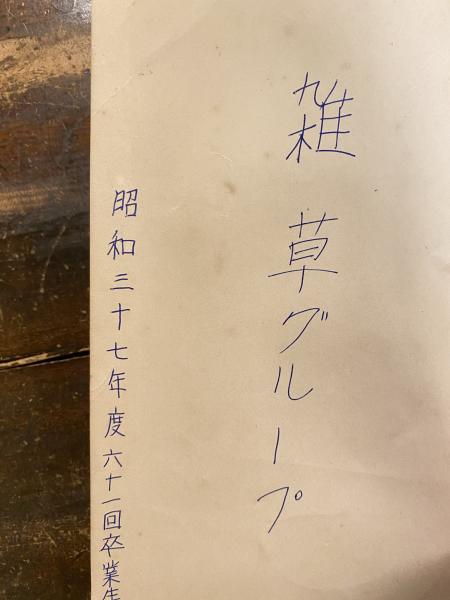 雑草グループ
昭和三十七年度六十一回卒業生